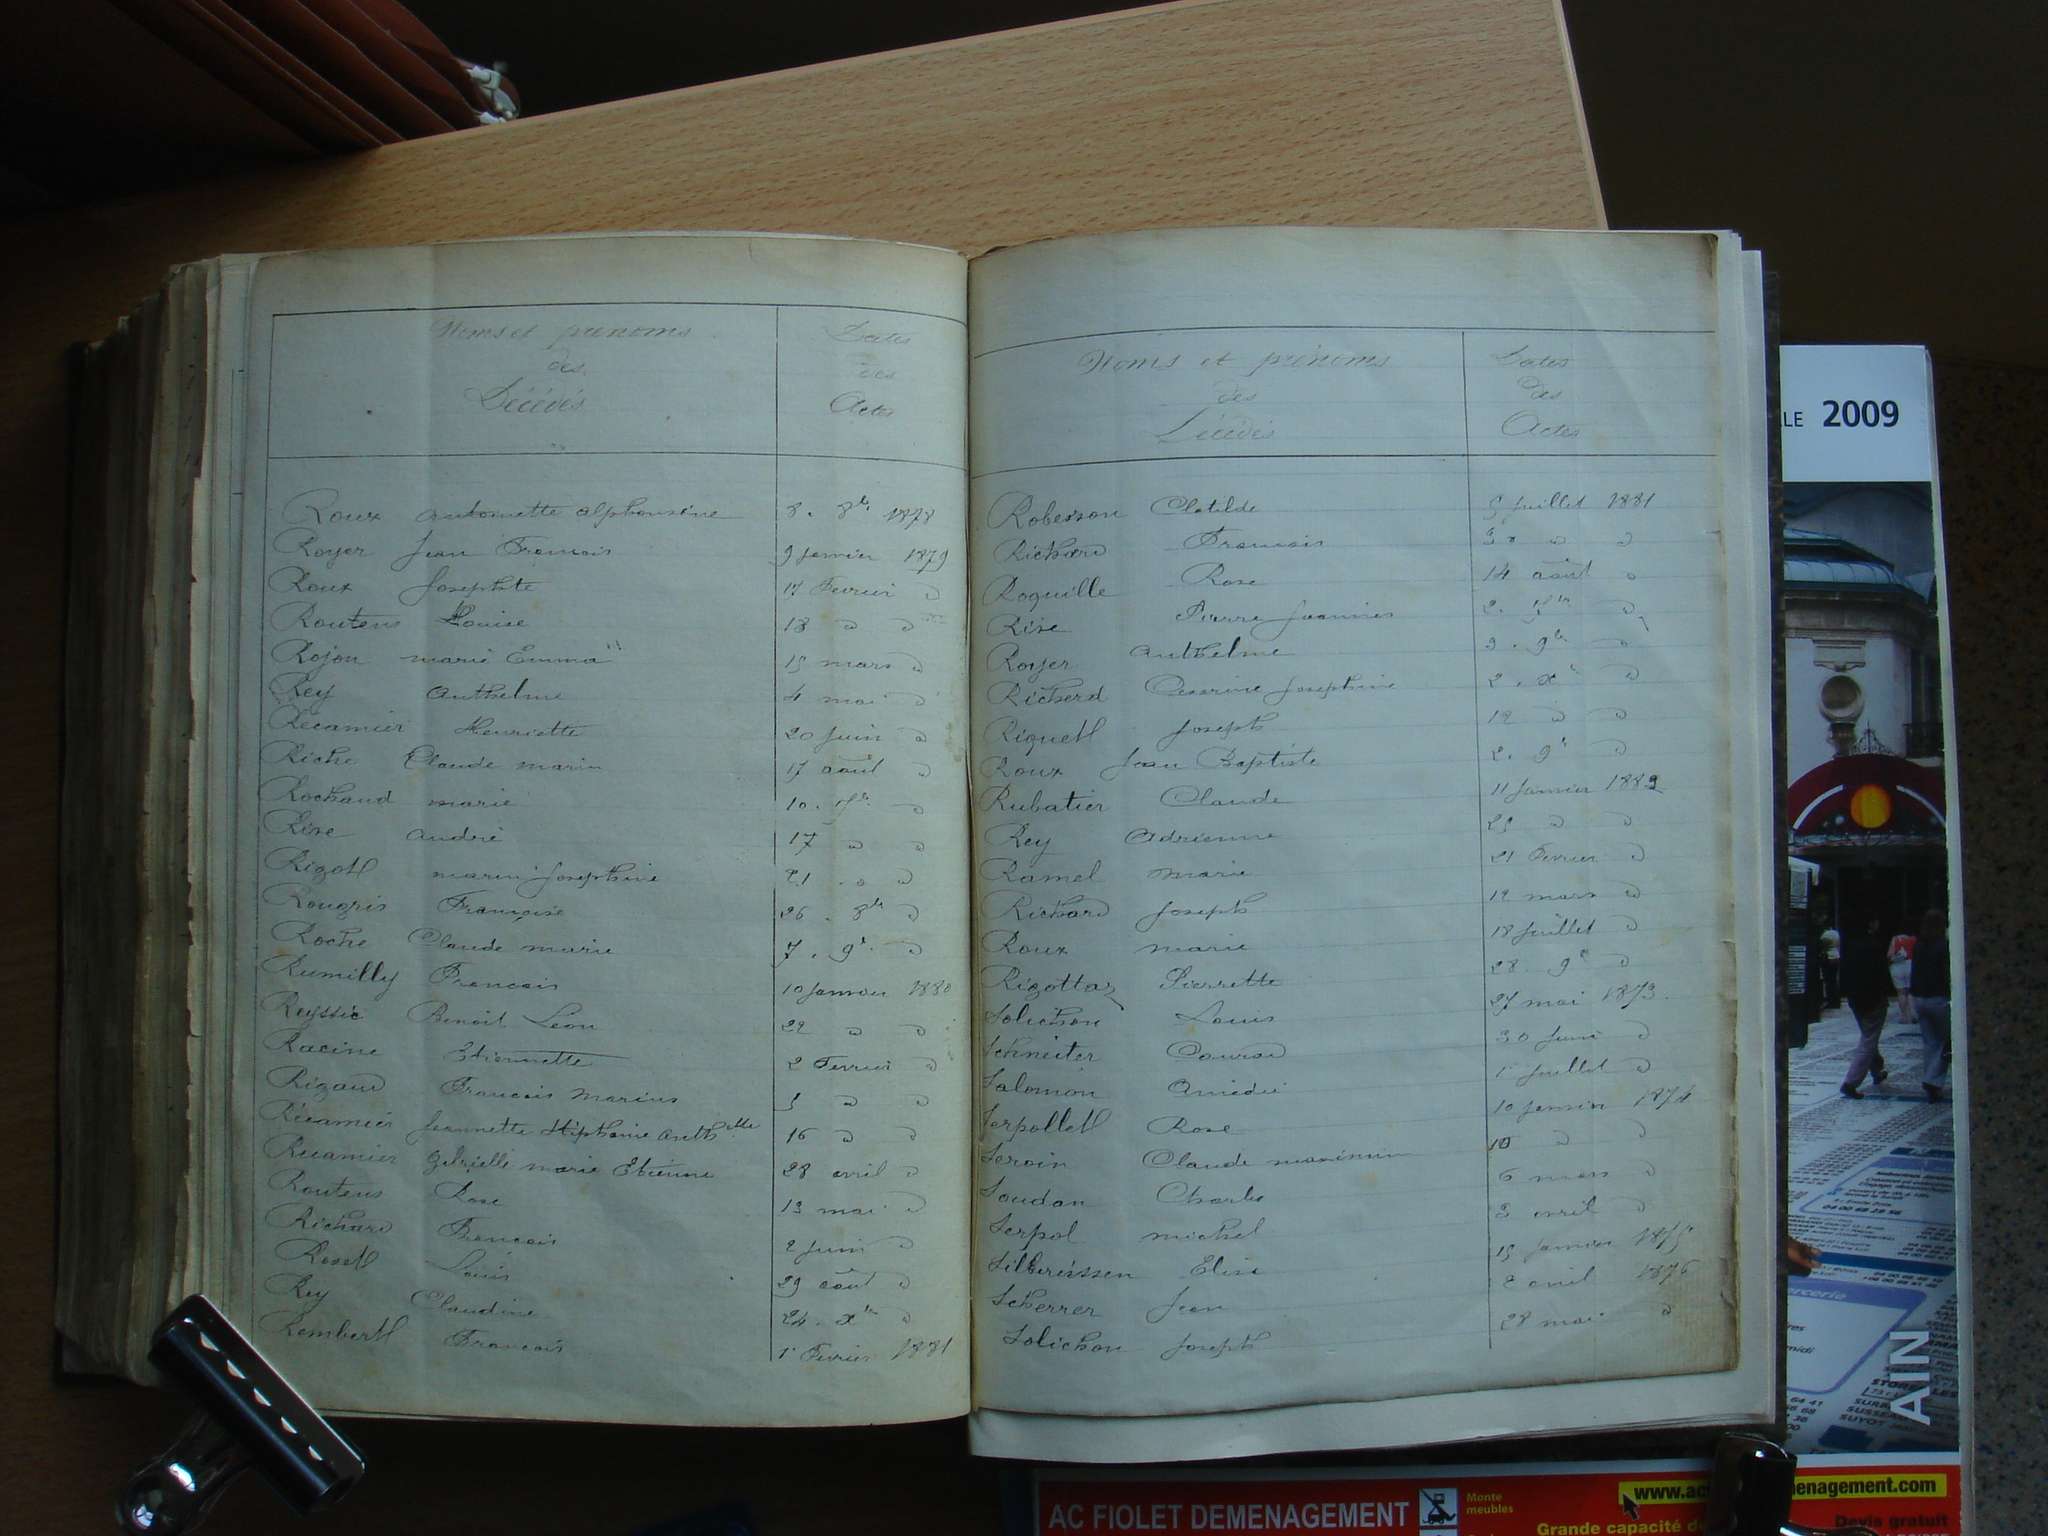 Noms et prénoms
des
Décédés
Dates
des
Actes
Roux Antoinette alphonsine 8. 8bre 1878
Royer Jean François 9 janvier 1879
Roux Josephte 17 Fevrier "
Routens Louise 18 " "
Rojon marie Emma 15 mars "
Rey Anthelme 4 mai "
Récamier Henriette 20 Juin "
Riche Claude marin 17 août "
Rochaud marie 10. 7bre "
Rive andré 17 " "
Rigott marie Josephine 21 " "
Rougris Françoise 26. 8bre "
Roche Claude marie 7. 9bre "
Rumilly Francois 10 Janvier 1880
Reyssié Benoit Léon 22 " "
Racine Etiennette 2 Fevrier "
Rigaud Francois Marius 5 " "
Récamier Jeannette Stéphanie 16 " "
Récamier Gabrielle marie Etienne 28 avril "
Routens Rose 13 mai "
Richard Francois 2 Juin "
Rosset Louis 29 août "
Rey Claudine 24. Xbre "
Rembertt Francois 1er Fevrier 1881
Noms et prénoms
des
Décédés
Dates
des
Actes
Robesson Clotilde 5 Juillet 1881
Richard Francois 30 " "
Roguille Rose 14 août "
Rive Pierre Joannies 2. 7bre "
Royer anthelme 3. 9bre "
Richerd Cesarine Josephine 2. Xbre "
Riguett Joseph 12 " "
Roux Jean Baptiste 2. 9bre "
Rubatier Claude 11 Janvier 1882
Rey Adrienne 25 " "
Ramel Marie 21 Fevrier "
Richard Joseph 12 mars "
Roux marie 18 Juillet "
Rigottaz Pierrette 28. 9bre "
Solichon Louis 27 mai 1873
Schneiter Conrad 30 Juin "
Salomon Amédée 1er Juillet "
Serpollett Rose 10 Janvier 1874
Seroin Claude maximin 10 " "
Soudan Charles 6 mars "
Serpol michel 3 avril "
Silbereissen Elise 15 Janvier 1875
Scherrer Jean 2 avril 1876
Solichon Joseph 28 mai "
LLE 2009
AIN
AC FIOLET DEMENAGEMENT
Monte
meubles
menagement.com
Grande capacité de
Devis gratuit